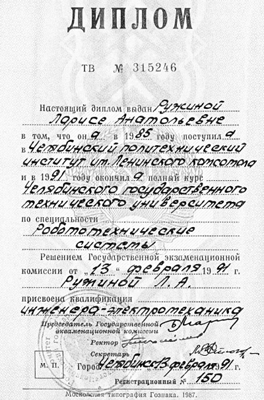 ДИПЛОМ
ТВ № 315246
Настоящий диплом выдан Ружиной
Ларисе Анатольевне
в том, что он а в 1985 году поступил а
в Челябинский политехнический
институт им. Ленинского комсомола
и в 1991 году окончил а полный курс
Челябинского государственного
технического университета
по специальности
Робототехнические
системы
Решением Государственной экзаменационной
комиссии от „13" февраля 1991 г.
Ружиной Л. А.
присвоена квалификация
инженера-электротехника
Председатель Государственной
экзаменационной комиссии
Ректор
Секретарь
М. П. Город Челябинск 13 февраля 1991 г.
Регистрационный № 150
Московская типография Гознака. 1987.